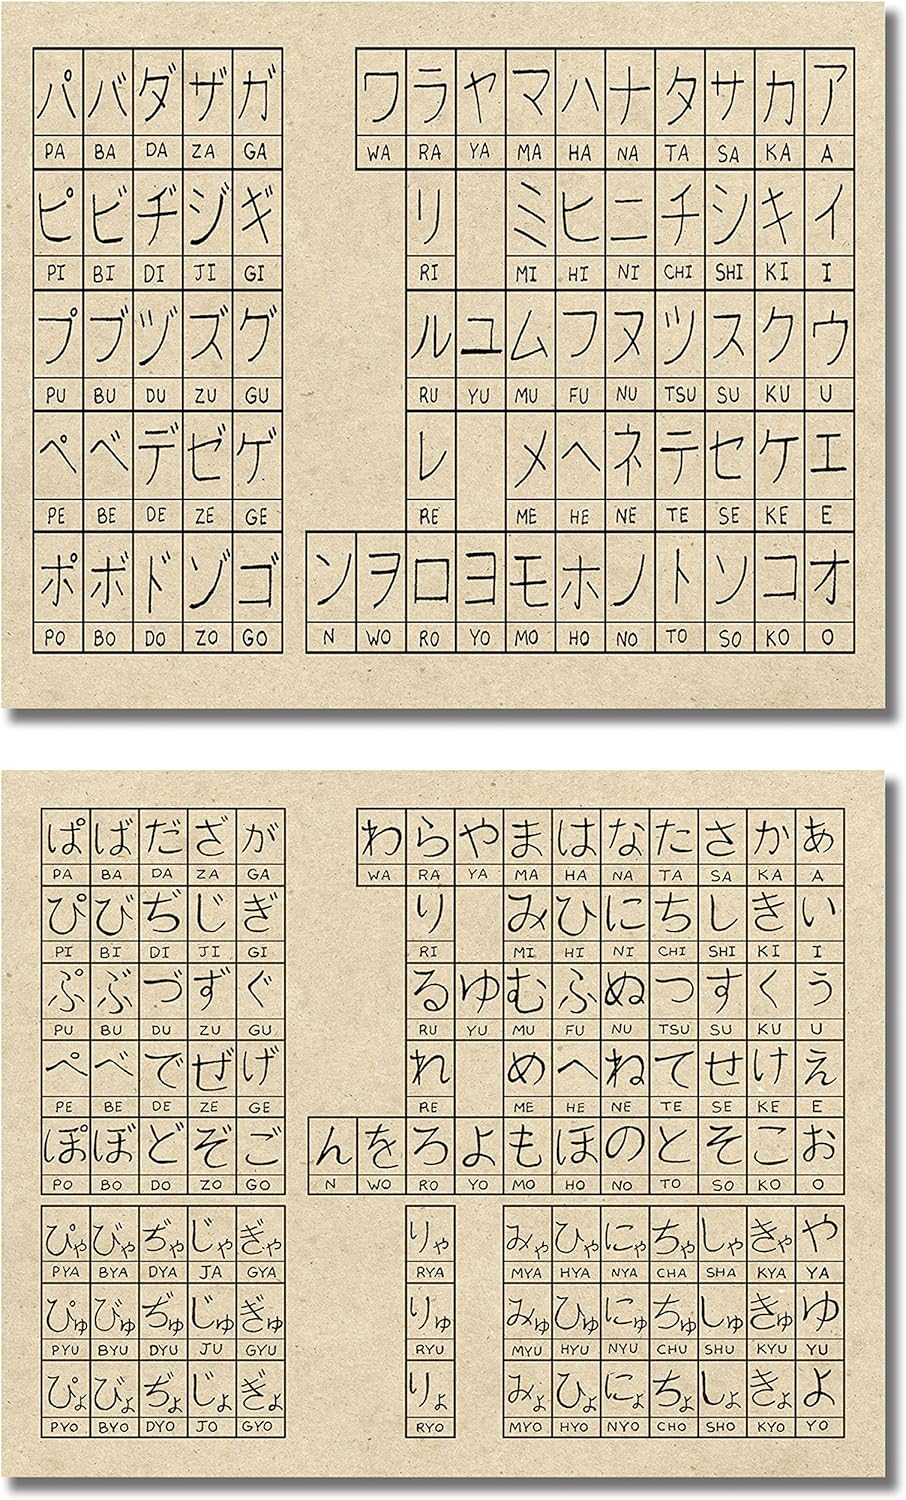 パ バ ダ ザ ガ ワ ラ ヤ マ ハ ナ タ サ カ ア
PA BA DA ZA GA WA RA YA MA HA NA TA SA KA A
ピ ビ ヂ ジ ギ リ ミ ヒ ニ チ シ キ イ
PI BI DI JI GI RI MI HI NI CHI SHI KI I
プ ブ ヅ ズ グ ル ユ ム フ ヌ ツ ス ク ウ
PU BU DU ZU GU RU YU MU FU NU TSU SU KU U
ペ ベ デ ゼ ゲ レ メ ヘ ネ テ セ ケ エ
PE BE DE ZE GE RE ME HE NE TE SE KE E
ポ ボ ド ゾ ゴ ン ヲ ロ ヨ モ ホ ノ ト ソ コ オ
PO BO DO ZO GO N WO RO YO MO HO NO TO SO KO O
ぱ ば だ ざ が わ ら や ま は な た さ か あ
PA BA DA ZA GA WA RA YA MA HA NA TA SA KA A
ぴ び ぢ じ ぎ り み ひ に ち し き い
PI BI DI JI GI RI MI HI NI CHI SHI KI I
ぷ ぶ づ ず ぐ る ゆ む ふ ぬ つ す く う
PU BU DU ZU GU RU YU MU FU NU TSU SU KU U
ぺ べ で ぜ げ れ め へ ね て せ け え
PE BE DE ZE GE RE ME HE NE TE SE KE E
ぽ ぼ ど ぞ ご ん を ろ よ も ほ の と そ こ お
PO BO DO ZO GO N WO RO YO MO HO NO TO SO KO O
ぴゃ びゃ ぢゃ じゃ ぎゃ りゃ みゃ ひゃ にゃ ちゃ しゃ きゃ や
PYA BYA DYA JA GYA RYA MYA HYA NYA CHA SHA KYA YA
ぴゅ びゅ ぢゅ じゅ ぎゅ りゅ みゅ ひゅ にゅ ちゅ しゅ きゅ ゆ
PYU BYU DYU JU GYU RYU MYU HYU NYU CHU SHU KYU YU
ぴょ びょ ぢょ じょ ぎょ りょ みょ ひょ にょ ちょ しょ きょ よ
PYO BYO DYO JO GYO RYO MYO HYO NYO CHO SHO KYO YO